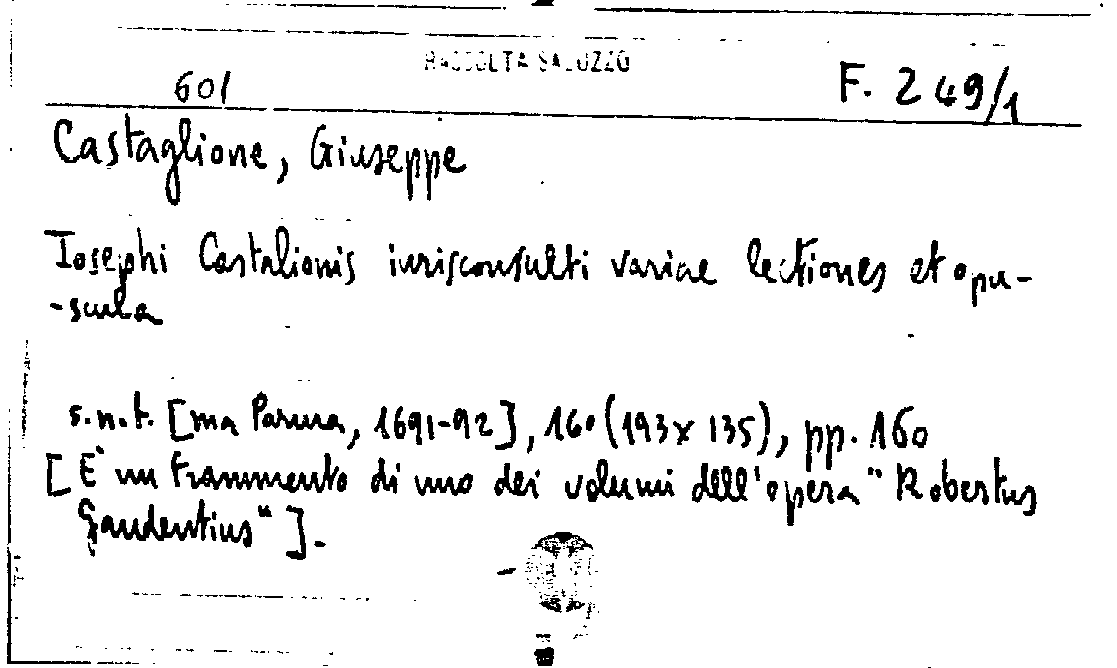 RACCOLTA SALUZZO
601 F. 249/1
Castaglione, Giuseppe
Iosephi Castalionis iurisconsulti variae lectiones et opu-
-scula
s.n.t. [ma Parma, 1691-92], 16° (193x135), pp. 160
[E' un frammento di uno dei volumi dell'opera "Robertus
Gaudentius"].-